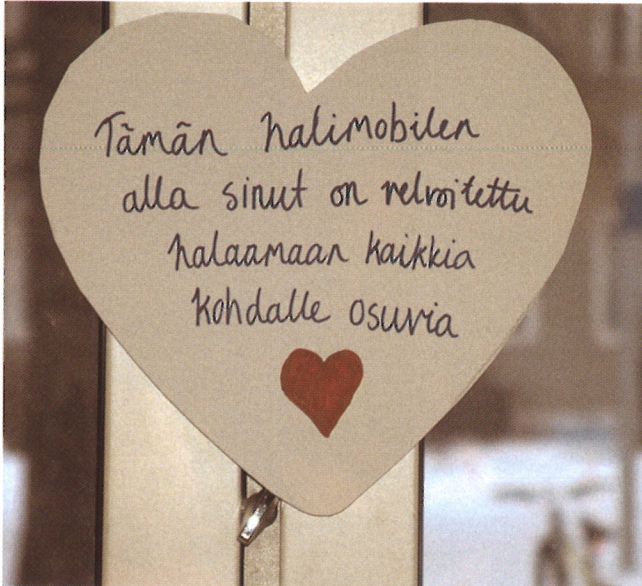 Tämän halimobilen
alla sinut on velvoitettu
halaamaan kaikkia
kohdalle osuvia